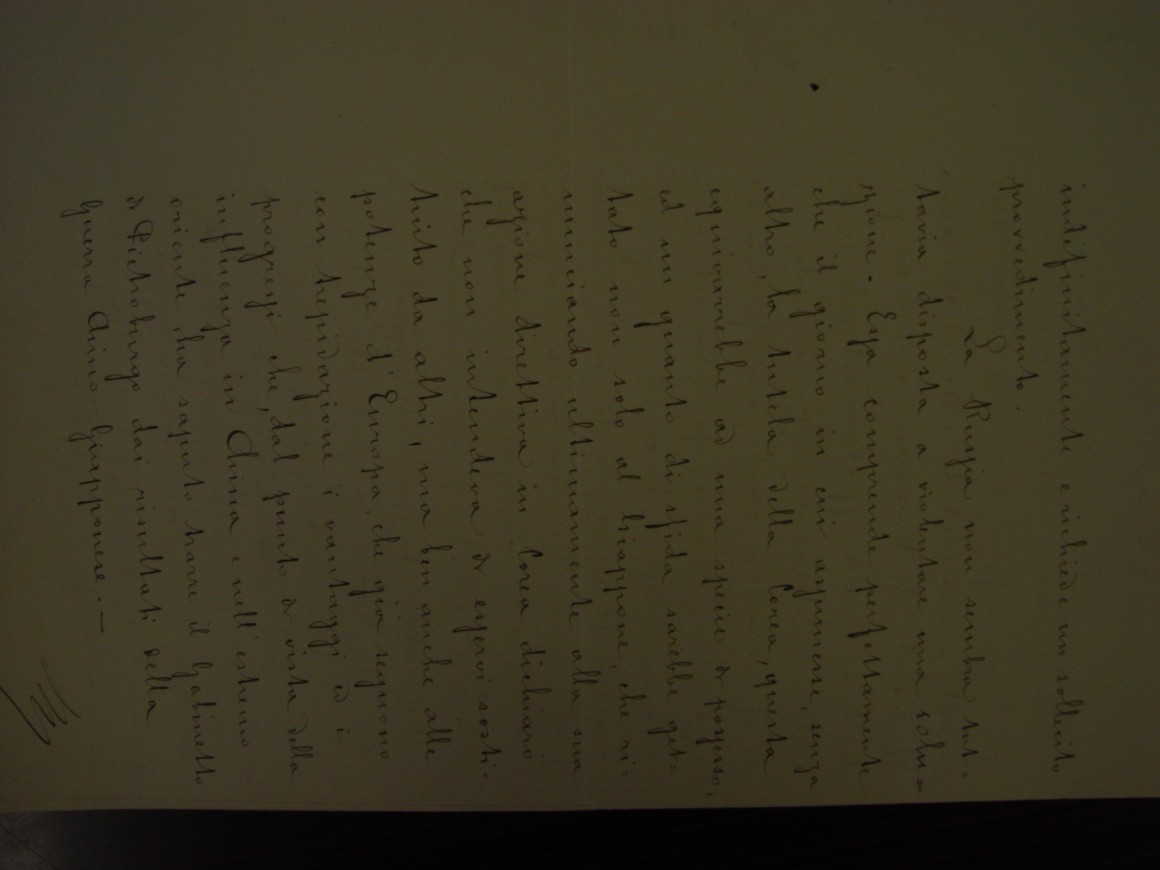 indefinitamente e richiede un sollecito
provvedimento.
La Russia non sembra tut-
tavia disposta a violentare una solu-
zione. Essa comprende perfettamente
che il giorno in cui assumesse, senza
altro, la tutela della Corea, questa
equivarrebbe ad una specie di possesso,
ed un guanto di sfida sarebbe get-
tato non solo al Giappone, che ri-
nunciando ultimamente alla sua
azione direttiva in Corea dichiarò
che non intendeva di esservi sosti-
tuito da altri, ma ben anche alle
potenze d'Europa, che già seguono
con trepidazione i vantaggi ed i
progressi che, dal punto di vista della
influenza in China e nell'estremo
oriente, ha saputo trarre il Gabinetto
di Pietroburgo dai risultati della
guerra Chino-Giapponese.—